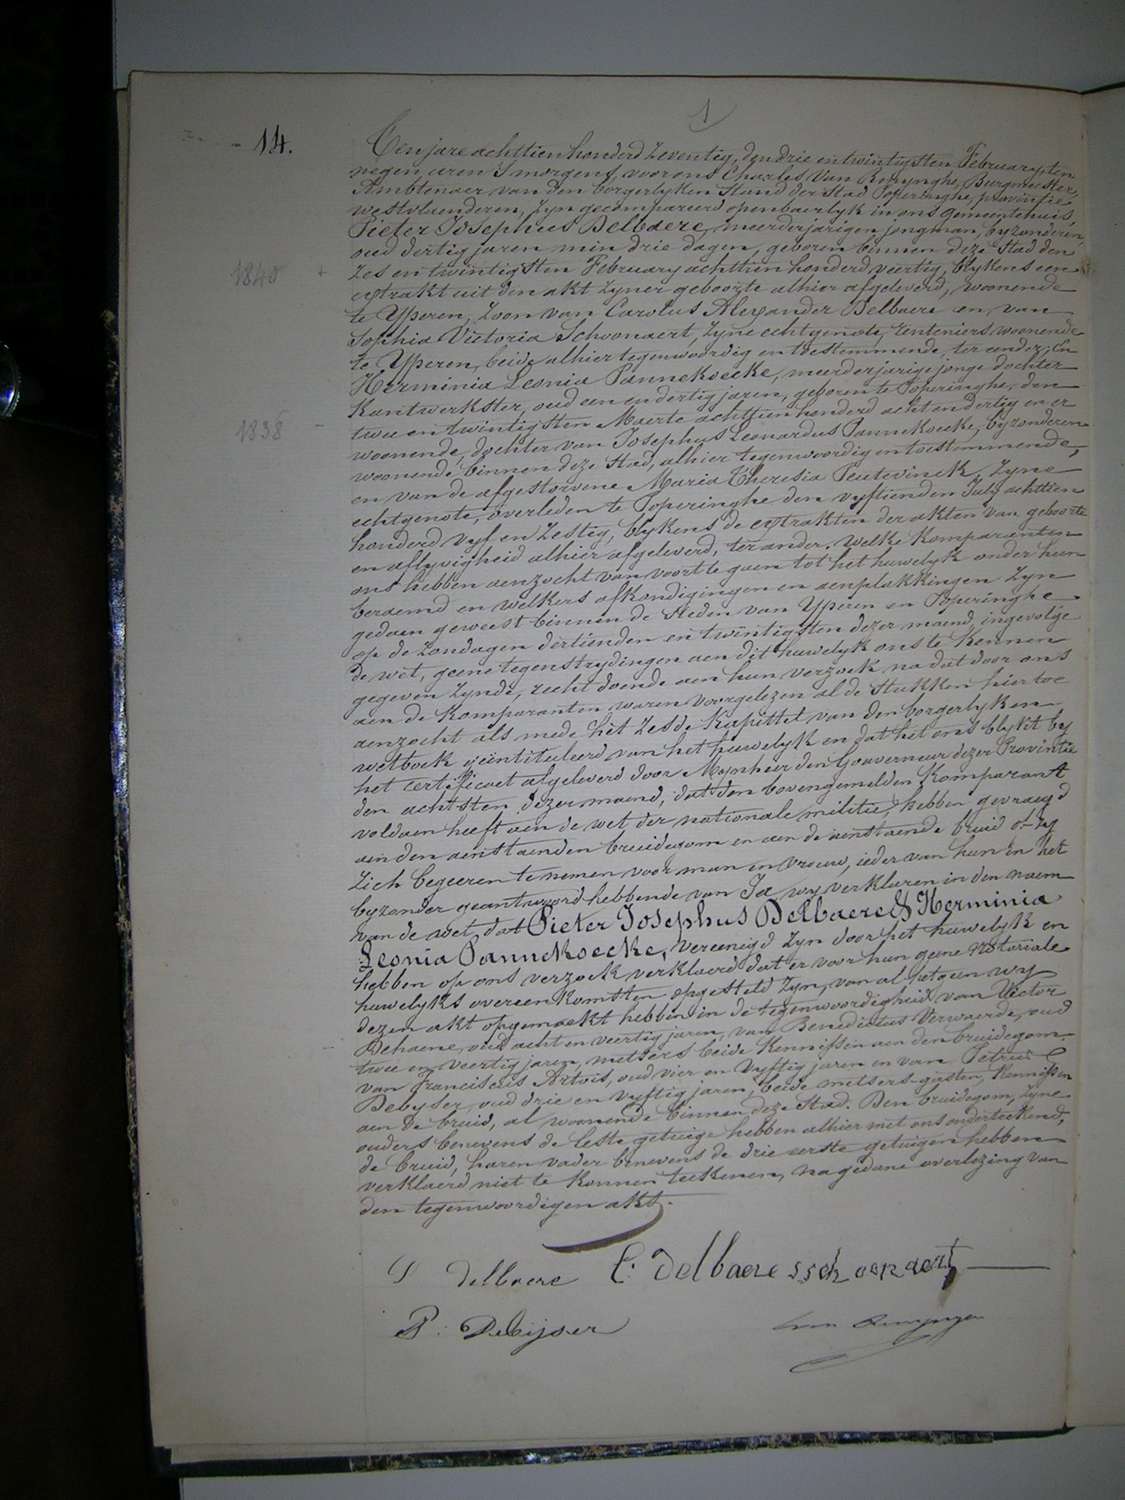 1
14.
Ten jare achttien honderd zeventig, den drie en twintigsten February, ten
negen uren 's morgens, voor ons Charles Van Renynghe, Burgmeester,
Ambtenaer van den borgerlyken Stand der Stad Poperinghe, provintie
westvlaenderen, zyn gecompareerd openbaerlyk in ons gemeentehuis,
Pieter Josephus Delbaere, meerderjarigen jongman, byzonderen,
oud dertig jaren min drie dagen, geboren binnen deze Stad den
1840
zes en twintigsten February achttien honderd veertig, blykens een
extrakt uit den akt zyner geboorte alhier afgeleverd, woonende
te Yperen, zoon van Carolus Alexander Delbaere en van
Sophia Victoria Schoonaert, zyne echtgenote, renteniers woonende
te Yperen, beide alhier tegenwoordig en toestemmende ter eender; En
Herminia Leonia Pannekoecke, meerderjarige jonge dochter
Kantwerkster, oud een en dertig jaren, geboren te Poperinghe, den
1838
twee en twintigsten Maerte achttien honderd acht en dertig en er
woonende, dochter van Josephus Leonardus Pannekoecke, byzonderen
woonende binnen deze Stad, alhier tegenwoordig en toestemmende,
en van de afgestorvene Maria Theresia Peutevinck, zyne
echtgenote, overleden te Poperinghe den vyftienden July achttien
honderd vyf en zestig, blykens de extrakten der akten van geboorte
en aflyvigheid alhier afgeleverd, ter ander. Welke Komparanten
ons hebben aenzocht van voort te gaen tot het huwelyk onder hun
beraemd en welkers afkondigingen en aenplakkingen zyn
gedaen geweest binnen de Steden van Yperen en Poperinghe
op de zondagen dertienden en twintigsten dezer maend, ingevolge
de wet, geene tegenstrydingen aen dit huwelyk ons te Kennen
gegeven zynde, recht doende aen hun verzoek, na dat door ons
aen de Komparanten waren voorgelezen al de Stukken hiertoe
aenzocht als mede het zesde Kapittel van den borgerlyken
wetboek geïntituleerd van het huwelyk en dat het ons blykt by
het certificaet afgeleverd door Mynheer den Gouverneur dezer Provintie
den achtsten dezer maend, dat den bovengemelden Komparant
voldaen heeft aen de wet der nationale militie, hebben gevraegd
aen den aenstaenden bruidegom en aen de aenstaende bruid of zy
zich begeeren te nemen voor man en vrouw, ieder van hun in het
byzonder geantwoord hebbende van Ja wy verklaren in den naem
van de wet, dat Pieter Josephus Delbaere & Herminia
Leonia Pannekoecke, vereenigd zyn door het huwelyk en
hebben op ons verzoek verklaerd dat er voor hun geene Notariale
huwelyks overeenkomsten opgesteld zyn, van al hetgeen wy
dezen akt opgemaekt hebben in de tegenwoordigheid van Victor
Dehaene, oud acht en veertig jaren, van Benedictus Verwaerde, oud
twee en veertig jaren, metsers beide Kennissen aen den bruidegom
van Franciscus Artois, oud vier en vyftig jaren en van Petrus
Debyser, oud drie en vyftig jaren, beide metsers-gasten, Kennissen
aen de bruid, al woonende binnen deze Stad. Den bruidegom, zyne
ouders benevens de leste getuige hebben alhier met ons onderteekend,
de bruid, haren vader benevens de drie eerste getuigen hebben
verklaerd niet te konnen teekenen, na gedane overlezing van
den tegenwoordigen akt.
P Delbaere C. Delbaere s schoonaert
P. Debijser